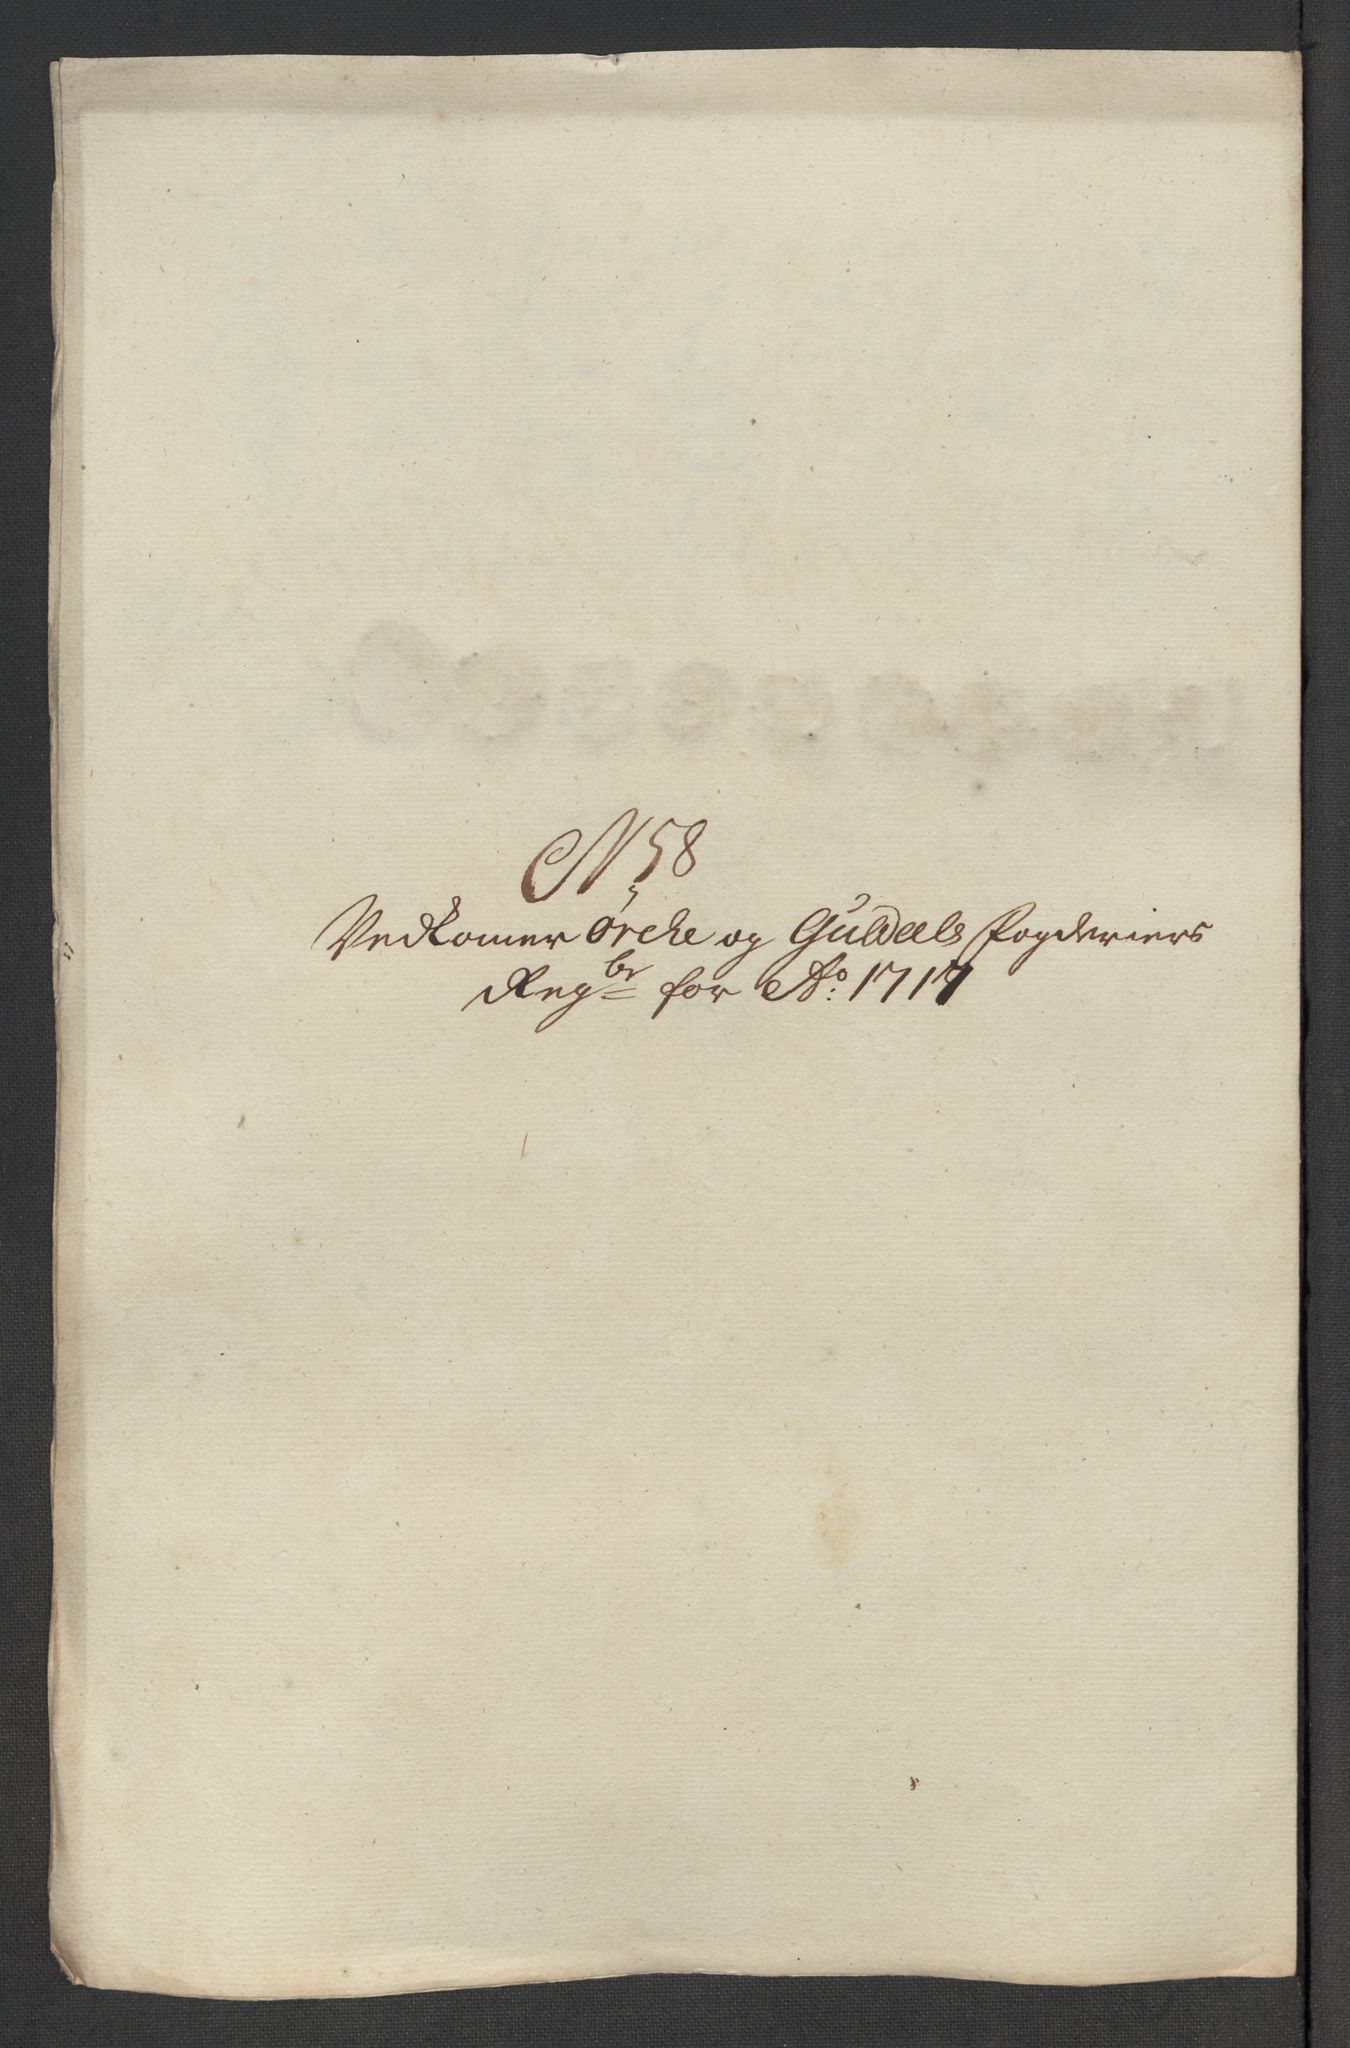 N 58
Vedkomer Ørcke og Guldals Fogderiers
Regbr for Ao: 1717